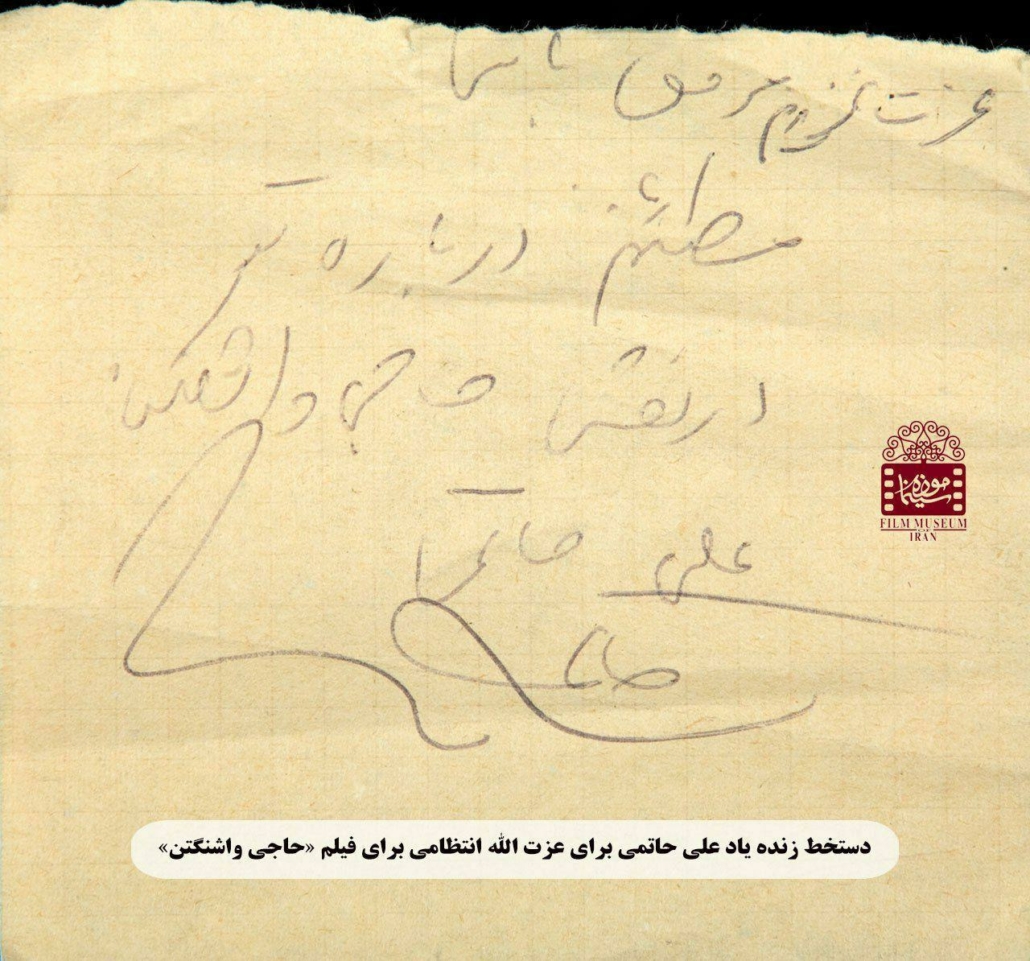 عزت عزیزم موفق باشی
مطمئنم درباره تو
در نقش حاجی واشنگتن
موزه سینما
FILM MUSEUM
IRAN
علی حاتمی
دستخط زنده یاد علی حاتمی برای عزت الله انتظامی برای فیلم «حاجی واشنگتن»